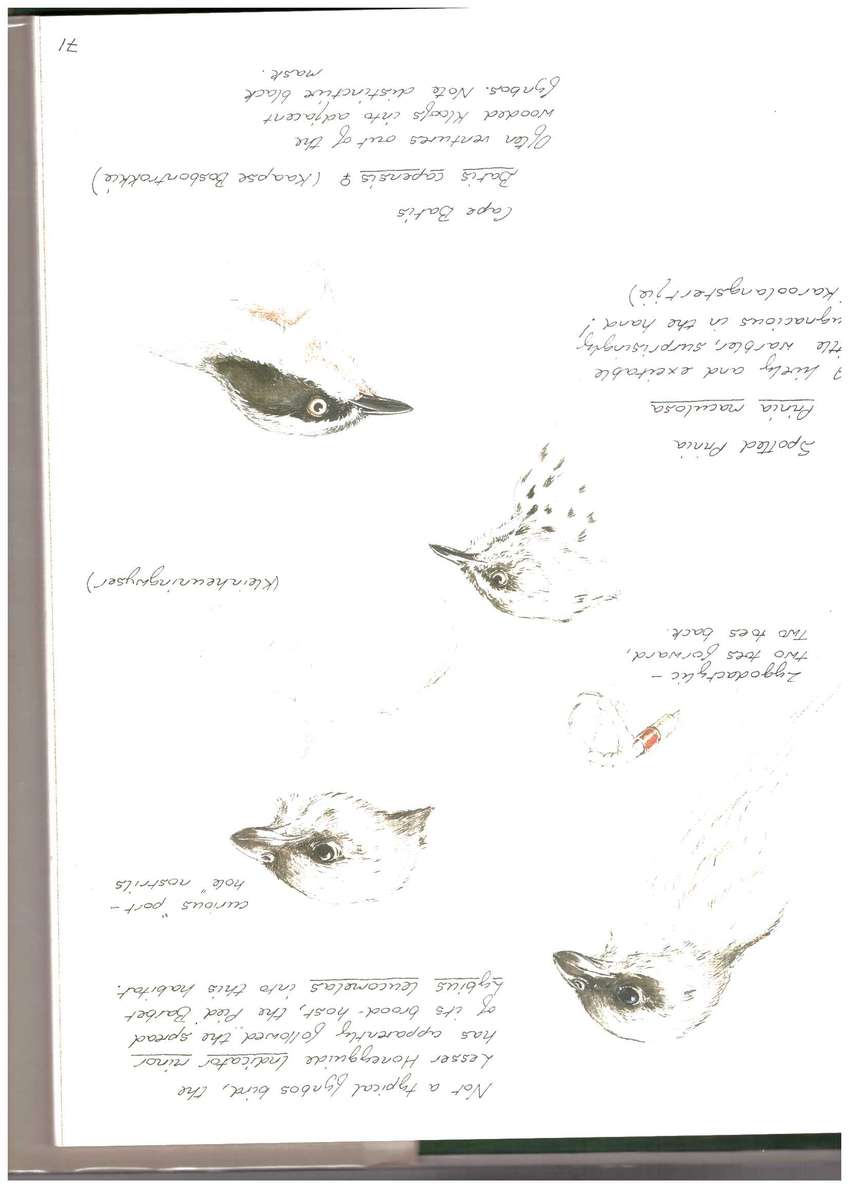 Not a typical fynbos bird, the
Lesser Honeyguide Indicator minor
has apparently followed the spread
of its brood-host, the Pied Barbet
Lybius leucomelas into this habitat.
curious "port-
hole" nostrils
Zygodactylic -
two toes forward,
two toes back.
(Kleinheuningwyser)
Spotted Prinia
Prinia maculosa
A lively and excitable
ttle warbler, surprisingly
ugnacious in the hand!
Karoolangstertjie)
Cape Batis
Batis capensis ♀ (Kaapse Bosbontrokkie)
Often ventures out of the
wooded kloofs into adjacent
fynbos. Note distinctive black
mask.
71